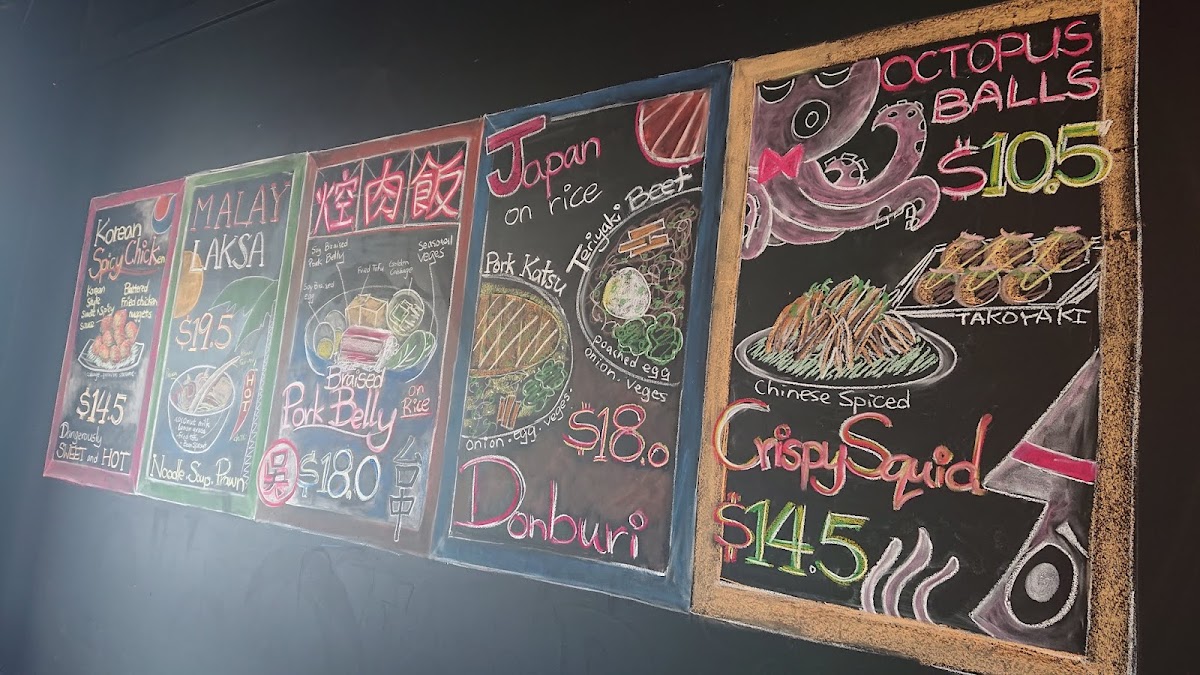 Korean
Spicy Chicken
Korean
Style
Sweet & Spicy
sauce
Battered
fried chicken
nuggets
$14.5
Dangerously
SWEET and HOT
MALAY
LAKSA
$19.5
HOT
coconut milk
Noodle. Soup. Prawn
焢肉飯
Soy Braised
Pork Belly
Fried Tofu
Golden
Cabbage
Seasonal
veges
Soy Braised
egg
Braised
Pork Belly
on
Rice
吳
$18.0
台中
Japan
on rice
Pork Katsu
onion.egg.veges.
Teriyaki Beef
poached egg
onion.veges
$18.0
Donburi
OCTOPUS
BALLS
$10.5
TAKOYAKI
Chinese Spiced
Crispy Squid
$14.5